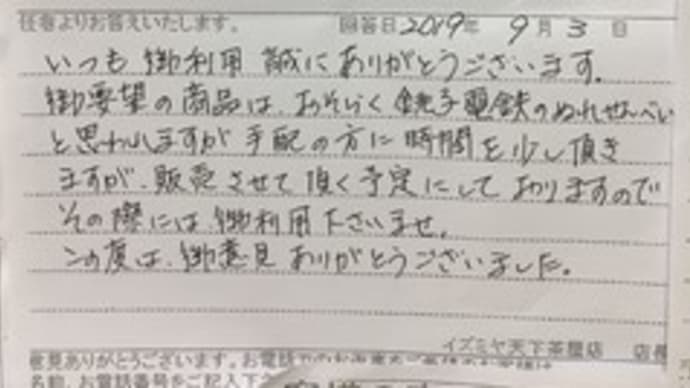 任者よりお答えいたします。 回答日 2019年 9月 3日
いつも御利用 誠にありがとうございます。
御要望の商品は、おそらく銚子電鉄のぬれせんべい
と思われますが 手配の方に時間を少し頂き
ますが、販売させて頂く予定にしておりますので
その際には御利用下さいませ。
この度は、御意見ありがとうございました。
イズミヤ天下茶屋店 店長
意見ありがとうございます。お電話
名前、お電話番号をご記入下